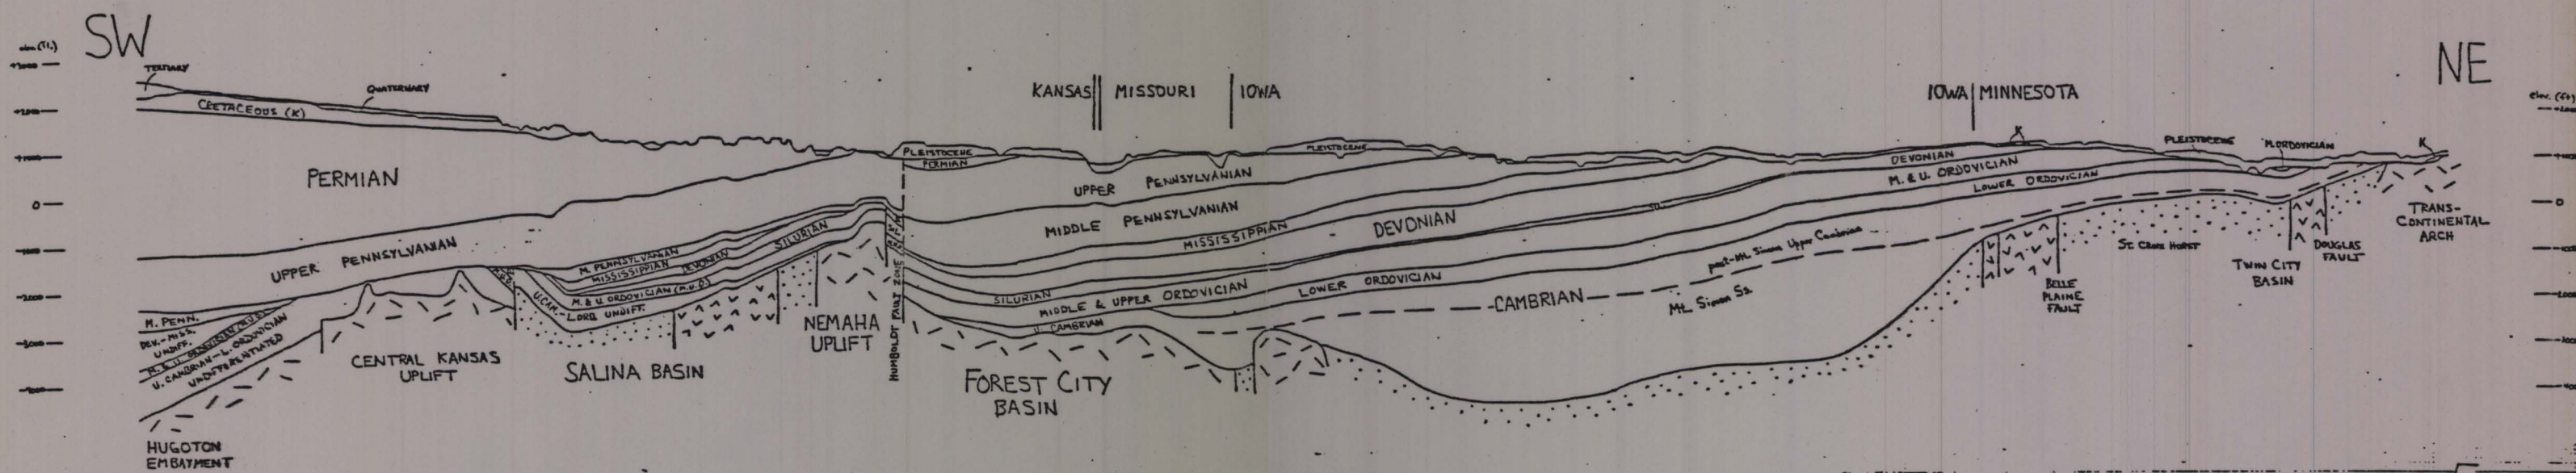 SW
NE
elev. (ft.)
+3000
+2000
+1000
0
-1000
-2000
-3000
-4000
TERTIARY
QUATERNARY
CRETACEOUS (K)
PERMIAN
UPPER PENNSYLVANIAN
M. PENN.
DEV.-MISS.
UNDIFF.
M. & U. ORDOVICIAN (M.U.O.)
U. CAMBRIAN-L. ORDOVICIAN
UNDIFFERENTIATED
HUGOTON
EMBAYMENT
CENTRAL KANSAS
UPLIFT
M. PENNSYLVANIAN
MISSISSIPPIAN
DEVONIAN
SILURIAN
M. & U. ORDOVICIAN (M.U.O.)
U. CAM.-L. ORD. UNDIFF.
SALINA BASIN
NEMAHA
UPLIFT
HUMBOLDT FAULT ZONE
KANSAS
MISSOURI
IOWA
PLEISTOCENE
PERMIAN
PLEISTOCENE
UPPER PENNSYLVANIAN
MIDDLE PENNSYLVANIAN
MISSISSIPPIAN
DEVONIAN
SILURIAN
MIDDLE & UPPER ORDOVICIAN
LOWER ORDOVICIAN
U. CAMBRIAN
CAMBRIAN
FOREST CITY
BASIN
post-Mt. Simon Upper Cambrian
Mt. Simon Ss.
IOWA
MINNESOTA
K
DEVONIAN
M. & U. ORDOVICIAN
LOWER ORDOVICIAN
PLEISTOCENE
M. ORDOVICIAN
K
BELLE
PLAINE
FAULT
St. Croix Horst
TWIN CITY
BASIN
DOUGLAS
FAULT
TRANS-
CONTINENTAL
ARCH
elev. (ft)
0